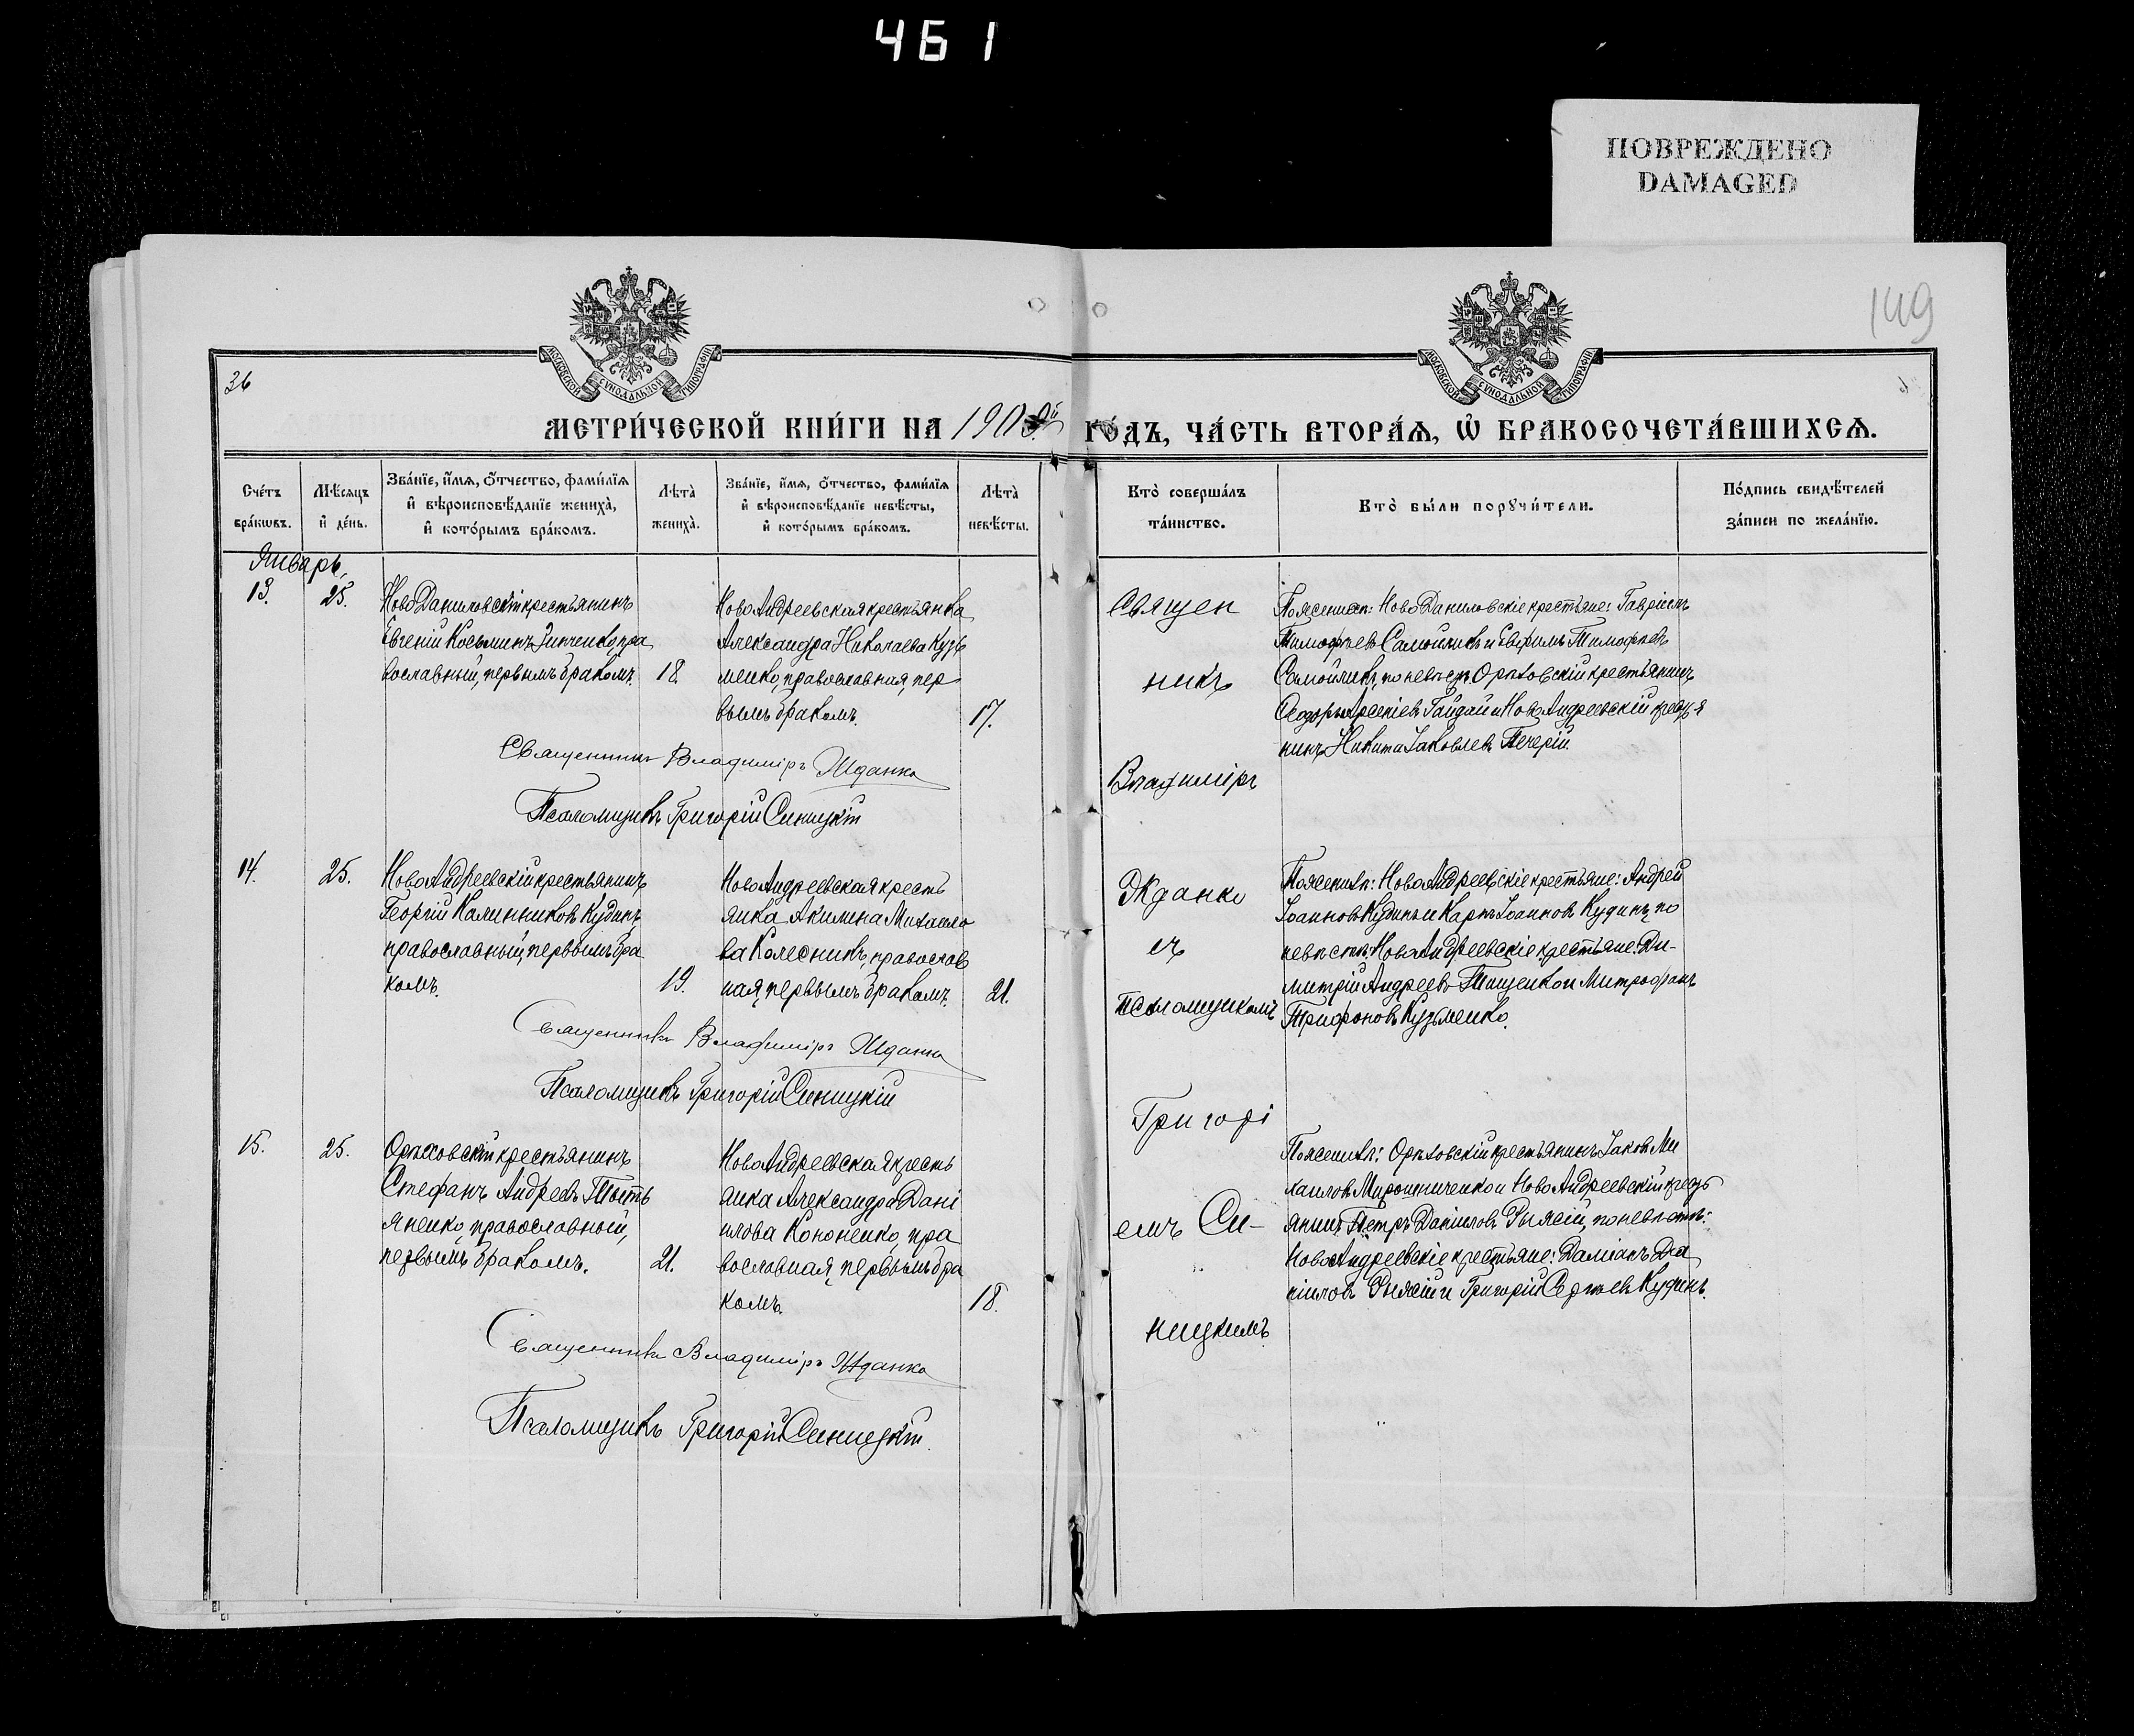 461
ПОВРЕЖДЕНО
DAMAGED
149
36
МОСКОВСКОЙ СѴНОДАЛЬНОЙ ТИПОГРАФІИ
МОСКОВСКОЙ СѴНОДАЛЬНОЙ ТИПОГРАФІИ
МЕТРИ́ЧЕСКОЙ КНИ́ГИ НА 190 ГО́ДЪ, ЧА́СТЬ ВТОРА́Ѧ, Ѽ БРАКОСОЧЕТА́ВШИХСѦ.
Сче́тъ бра́кѡвъ.
Мѣ́сяцъ и҆ де́нь.
Зва́нїе, и҆́мѧ, ѻ҆́тчество, фами́лїѧ
и҆ вѣроисповѣ́данїе жениха̀,
и҆ кото́рымъ бра́комъ.
Лѣ́та̀ жениха̀.
Зва́нїе, и҆́мѧ, ѻ҆́тчество, фами́лїѧ
и҆ вѣроисповѣ́данїе невѣ́сты,
и҆ кото́рымъ бра́комъ.
Лѣ́та̀ невѣ́сты.
Кто̀ соверша́лъ
та́инство.
Кто̀ бы́ли порꙋчи́тели.
По́дпись свидѣ́телей
за́писи по жела́нїю.
Январь.
13.
25.
НовоДаниловскій крестьянинъ
Евгеній Косьминъ Зинченко, пра
вославный, первымъ бракомъ.
18.
НовоАндреевская крестьянка
Александра Николаева Кузь
менко, православная, пер
вымъ бракомъ.
17.
Священ
никъ
Владиміръ
По женихѣ: НовоДаниловскіе крестьяне: Гавріилъ
Тимофѣевъ Самойликъ и Евфимъ Тимофѣевъ
Самойликъ, по невѣстѣ Орѣховскій крестьянинъ
Ѳеодоръ Арсеніевъ Гайдай и НовоАндреевскій крестья
нинъ Никита Іаковлевъ
Священникъ Владиміръ Жданко
Псаломщикъ Григорій Синицкій
14.
25.
НовоАндреевскій крестьянинъ
Георгій Калинниковъ Кудинъ,
православный, первымъ бра
комъ.
19.
НовоАндреевская кресть
янка Акилина Михаило
ва Колесникъ, православ
ная, первымъ бракомъ.
21.
Жданко
съ
псаломщикомъ
По женихѣ: НовоАндреевскіе крестьяне: Андрей
Іоанновъ Кудинъ и Карпъ Іоанновъ Кудинъ, по
невѣстѣ: НовоАндреевскіе крестьяне: Ди-
митрій Андреевъ Тищенко и Митрофанъ
Трифоновъ Кузьменко.
Священникъ Владиміръ Жданко
Псаломщикъ Григорій Синицкій
15.
25.
Орѣховскій крестьянинъ
Стефанъ Андреевъ
яненко, православный,
первымъ бракомъ.
21.
НовоАндреевская кресть
янка Александра Дані
илова Кононенко, пра
вославная, первымъ бра
комъ.
18.
Григорі
емъ Си-
ницкимъ.
По женихѣ: Орѣховскій крестьянинъ Іаковъ Ми
хаиловъ Мирошниченко и НовоАндреевскій кресть
янинъ Петръ Даніиловъ по невѣстѣ:
НовоАндреевскіе крестьяне: Даміанъ Да
ніиловъ и Григорій Сергѣевъ Кудинъ.
Священникъ Владиміръ Жданко
Псаломщикъ Григорій Синицкій.